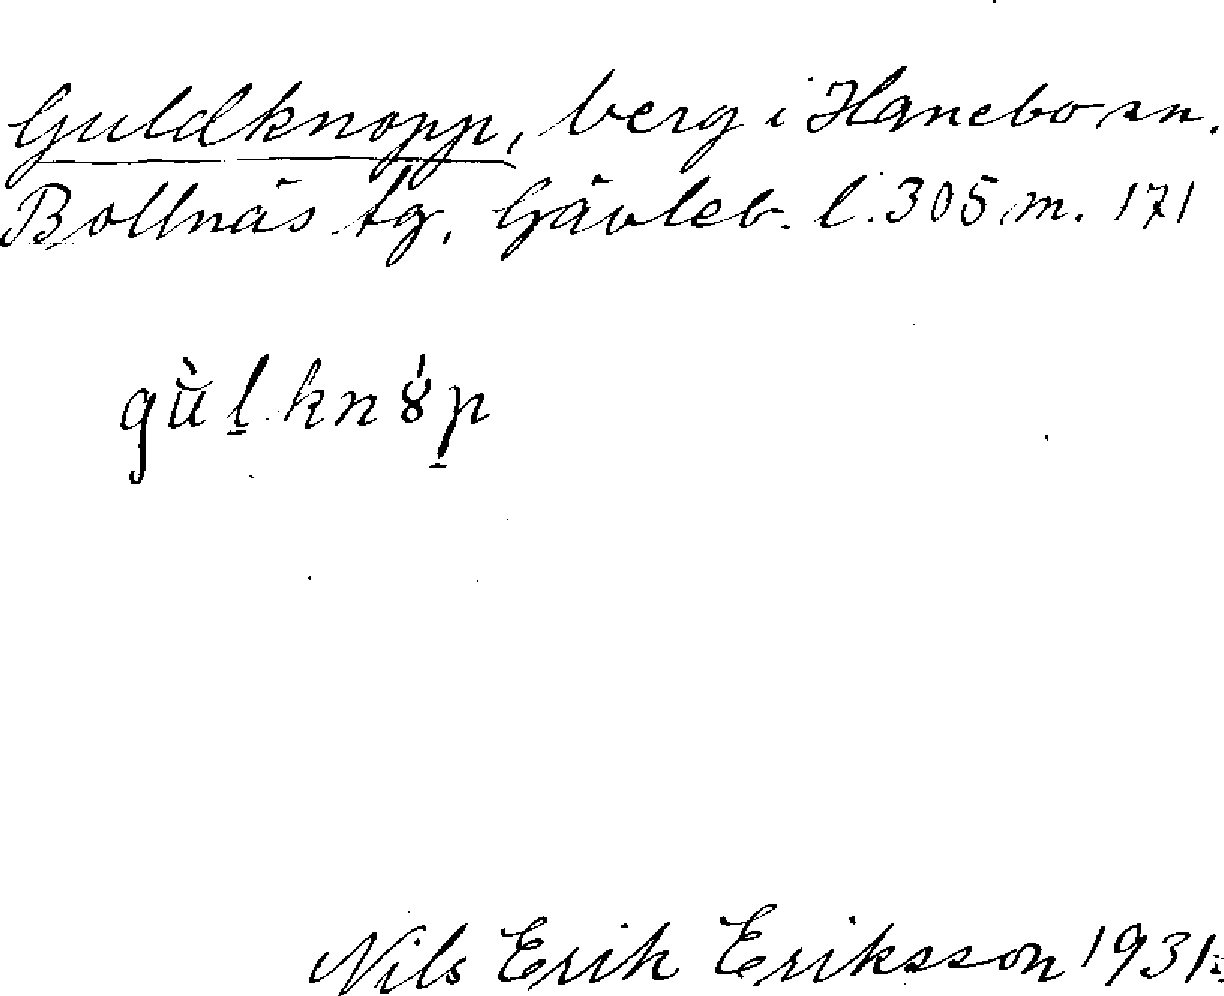 Guldknopp, berg i Hanebo sn.
Bollnäs tg. Gävleb. l. 305 m. 171
gù̆l̠ knȣ́p̠
Nils Erik Eriksson 1931.